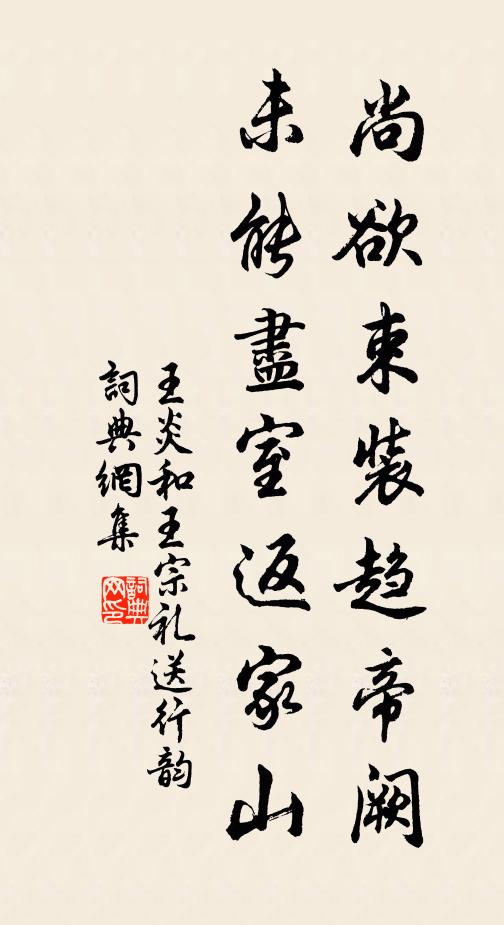 尚欲束裝趋帝阙
未能盡室返家山
王炎和王宗礼送行韵
詞典網集
詞典网印